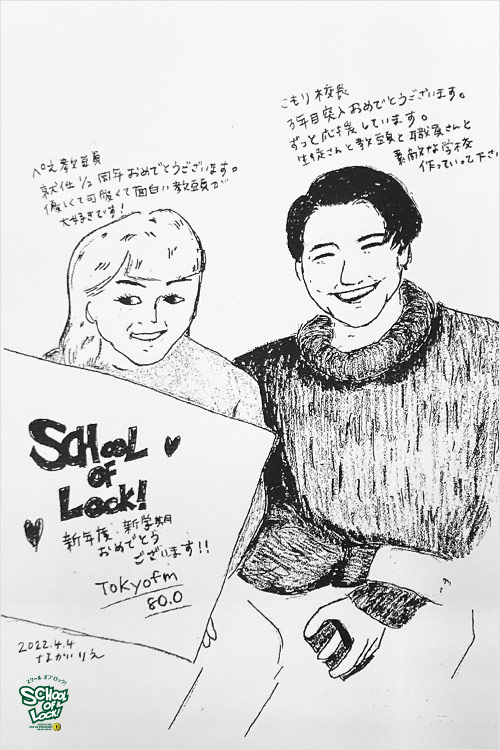 ぺえ教頭
就任 1/2 周年 おめでとうございます。
優しくて可愛くて面白い教頭が
大好きです!
こもり校長
3年目突入おめでとうございます。
ずっと応援しています。
生徒さんと教頭と職員さんと
素敵な学校
作っていって下さい
SCHooL
oF
Lock!
新年度・新学期
おめでとう
ございます!!
TOKYOfm
80.0
2022.4.4
りえ
スクール オブ ロック!
SCHOOL
OF
LOCK!